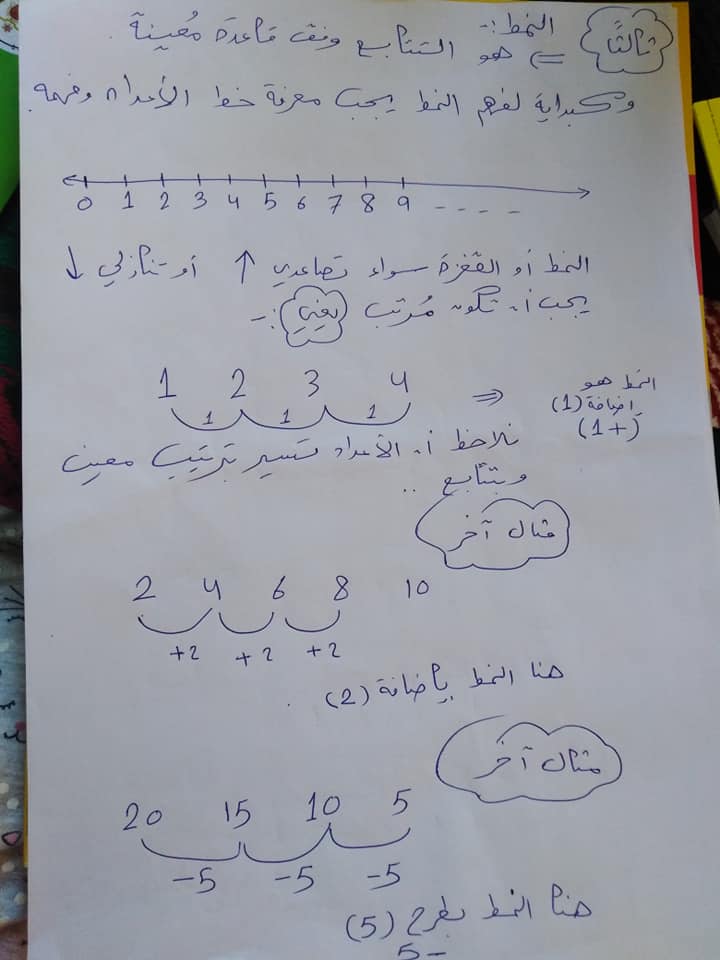 ثالثًا
النمط :-
⇐ هو التتابع وفق قاعدة مُعينة.
وكبداية لفهم النمط يجب معرفة خط الأعداد وفهمه.
0 1 2 3 4 5 6 7 8 9 - - - -
النمط أو القفزة سواء تصاعدي ↑ أو تنازلي ↓
يجب أن تكون مُرتب يعني :-
1 2 3 4 ⇒ النمط هو
1 1 1 إضافة (1)
(+1)
نلاحظ أن الأعداد تسير بترتيب معين
وبتتابع ..
مثال آخر
2 4 6 8 10
+2 +2 +2
هنا النمط بإضافة (2) .
مثال آخر
20 15 10 5
-5 -5 -5
هنا النمط بطرح (5)
5-